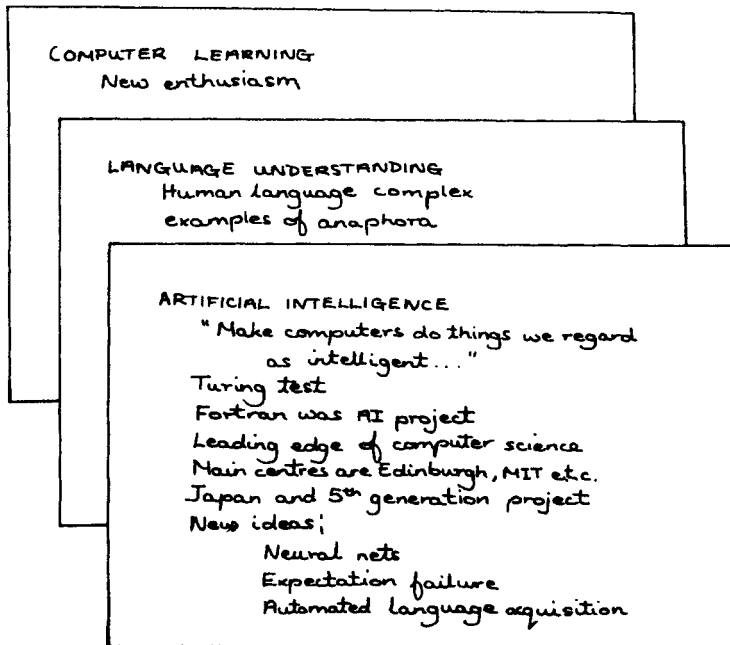 COMPUTER LEARNING
New enthusiasm
LANGUAGE UNDERSTANDING
Human language complex
examples of anaphora
ARTIFICIAL INTELLIGENCE
"Make computers do things we regard
as intelligent..."
Turing test
Fortran was AI project
Leading edge of computer science
Main centres are Edinburgh, MIT etc.
Japan and 5th generation project
New ideas;
Neural nets
Expectation failure
Automated language acquisition